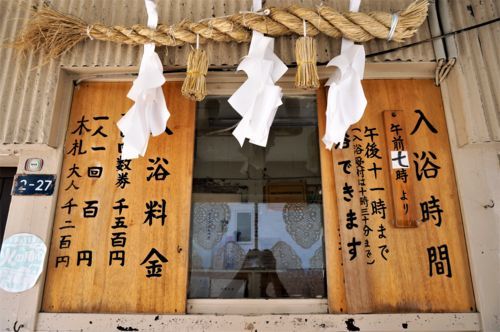 入浴時間
午前七時より
午後十一時まで
(入浴受付は十時三十分まで)
できます
入浴料金
回数券 千五百円
一人一回 百円
木札 大人 千二百円
2-27